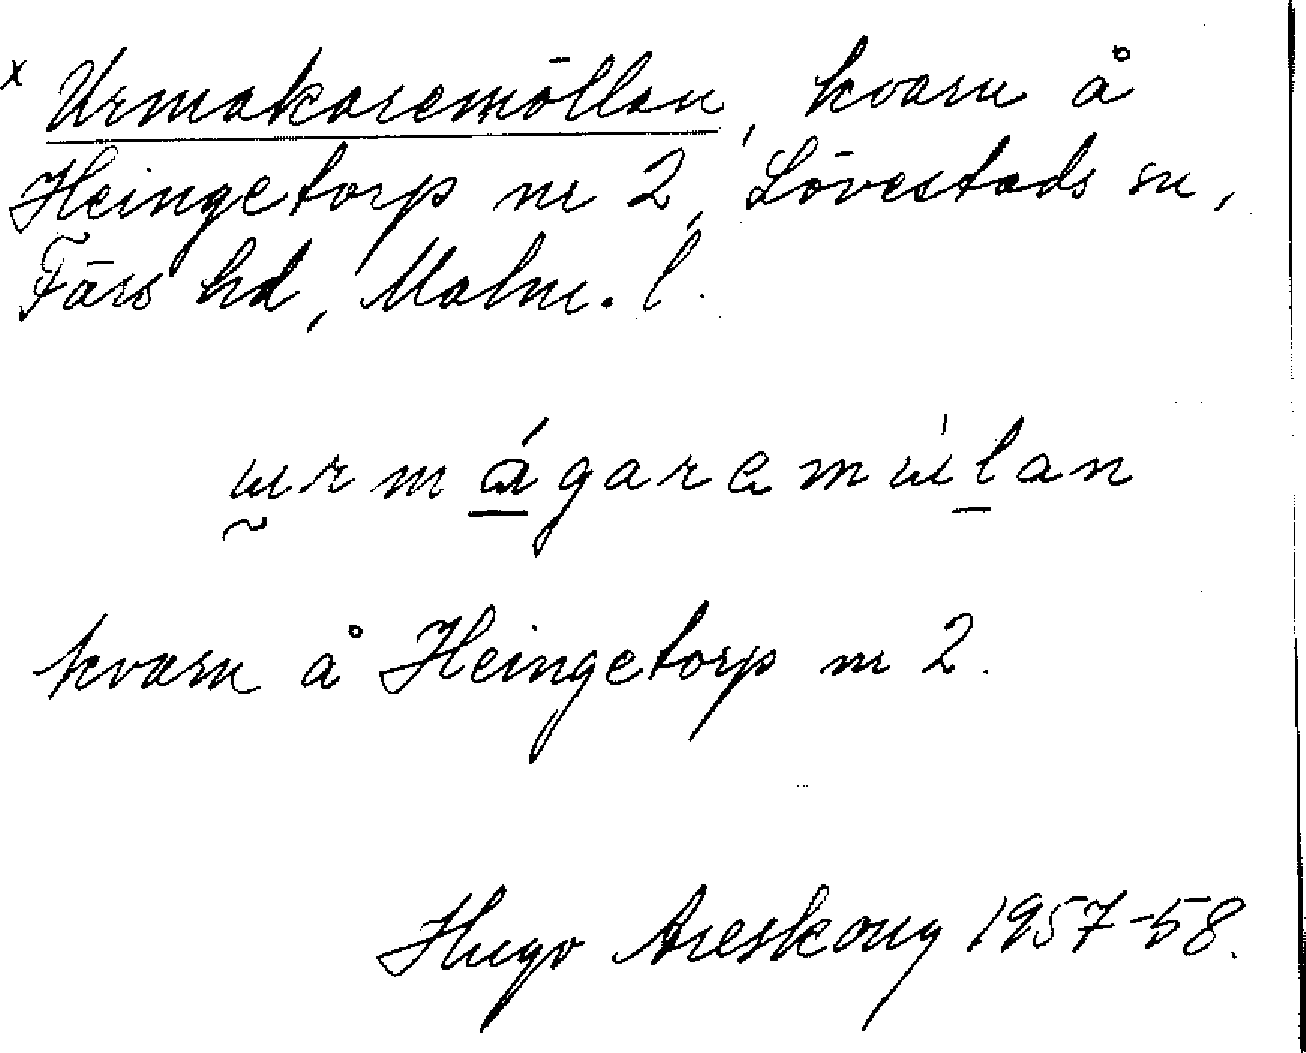 x Urmakaremöllan, kvarn å
Heingetorp nr 2, Lövestads sn,
Färs hd, Malm. l.
kvarn å Heingetorp nr 2.
Hugo Areskoug 1957-58.